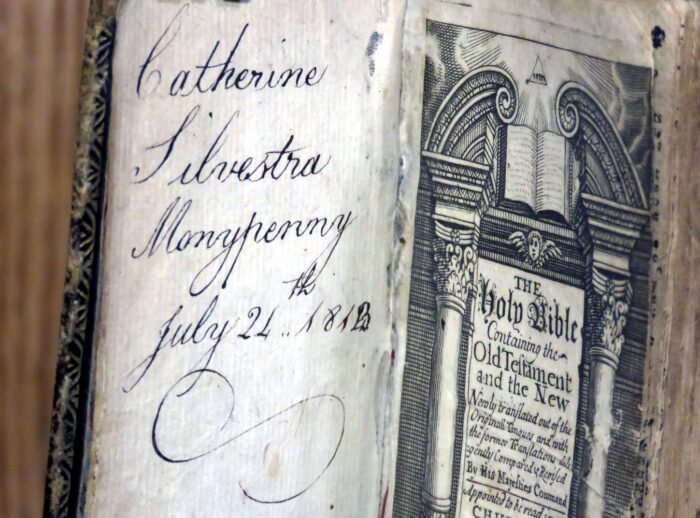 Catherine
Silvestra
Monypenny
July 24th 1813
THE
Holy Bible
Containing the
Old Testament
and the New
Newly tranſlated out of the
Originall Tongues and with
the former Tranſlations dili
gently Compared & Reviſed
By His Majeſties Command
Appointed to be read in
CHU